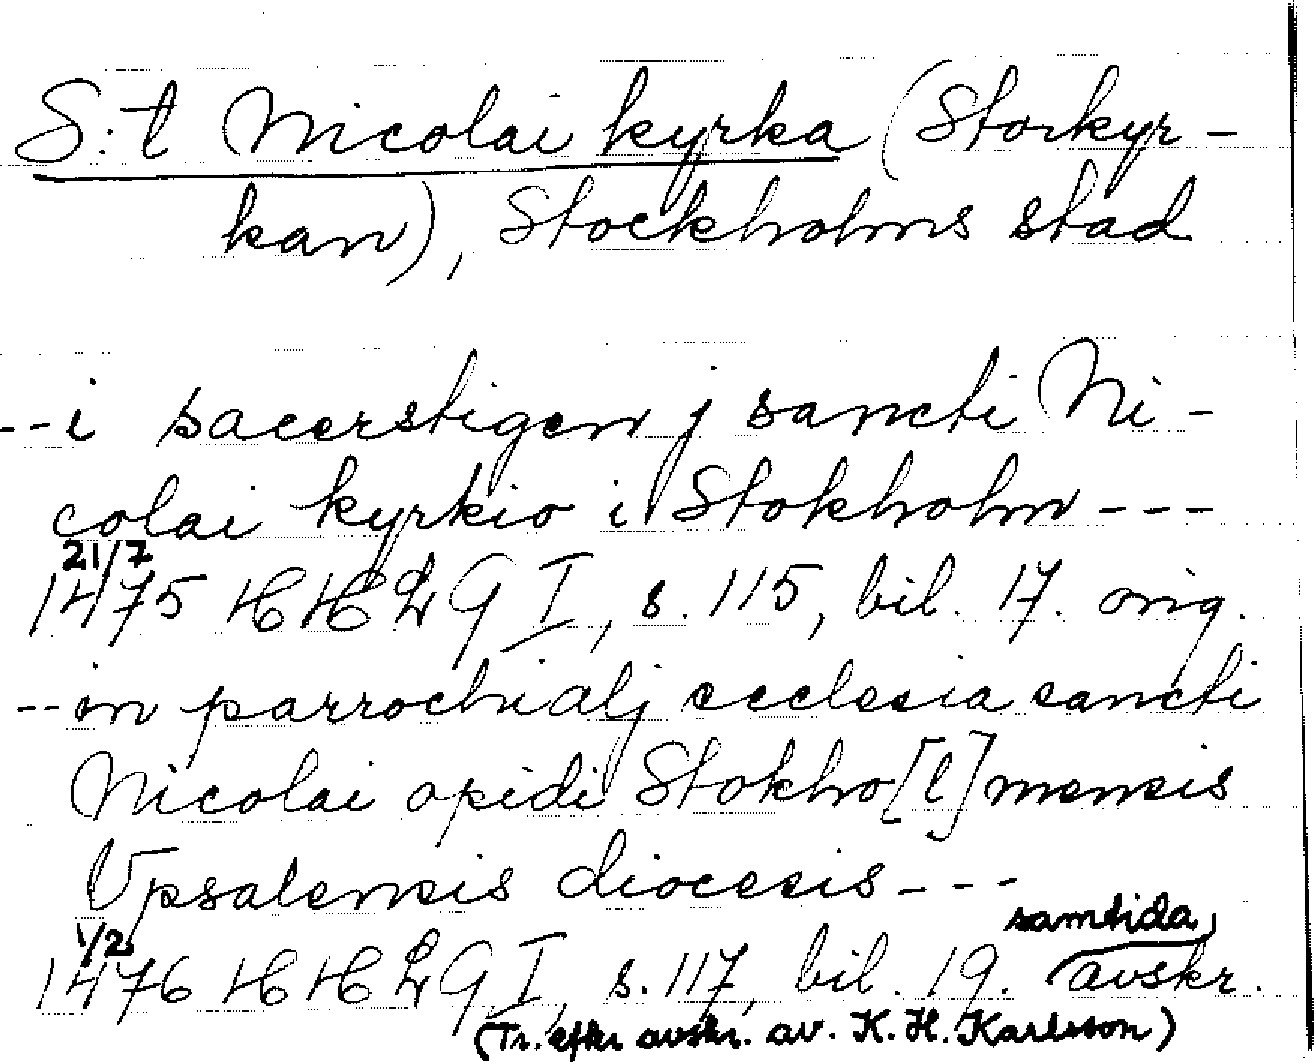 S:t Nicolai kyrka (Storkyr-
kan), Stockholms stad
--i sacerstigen j sancti Ni-
colai kyrkio i Stokholm---
21/7
1475 HHLG I, s. 115, bil. 17. orig.
--in parrochialj ecclesia sancti
Nicolai opidi Stokho[l]mensis
Vpsalensis diocesis---
1/2 samtida
1476 HHLG I, s. 117, bil. 19. avskr.
(Tr. efter avskr. av. K. H. Karlsson)